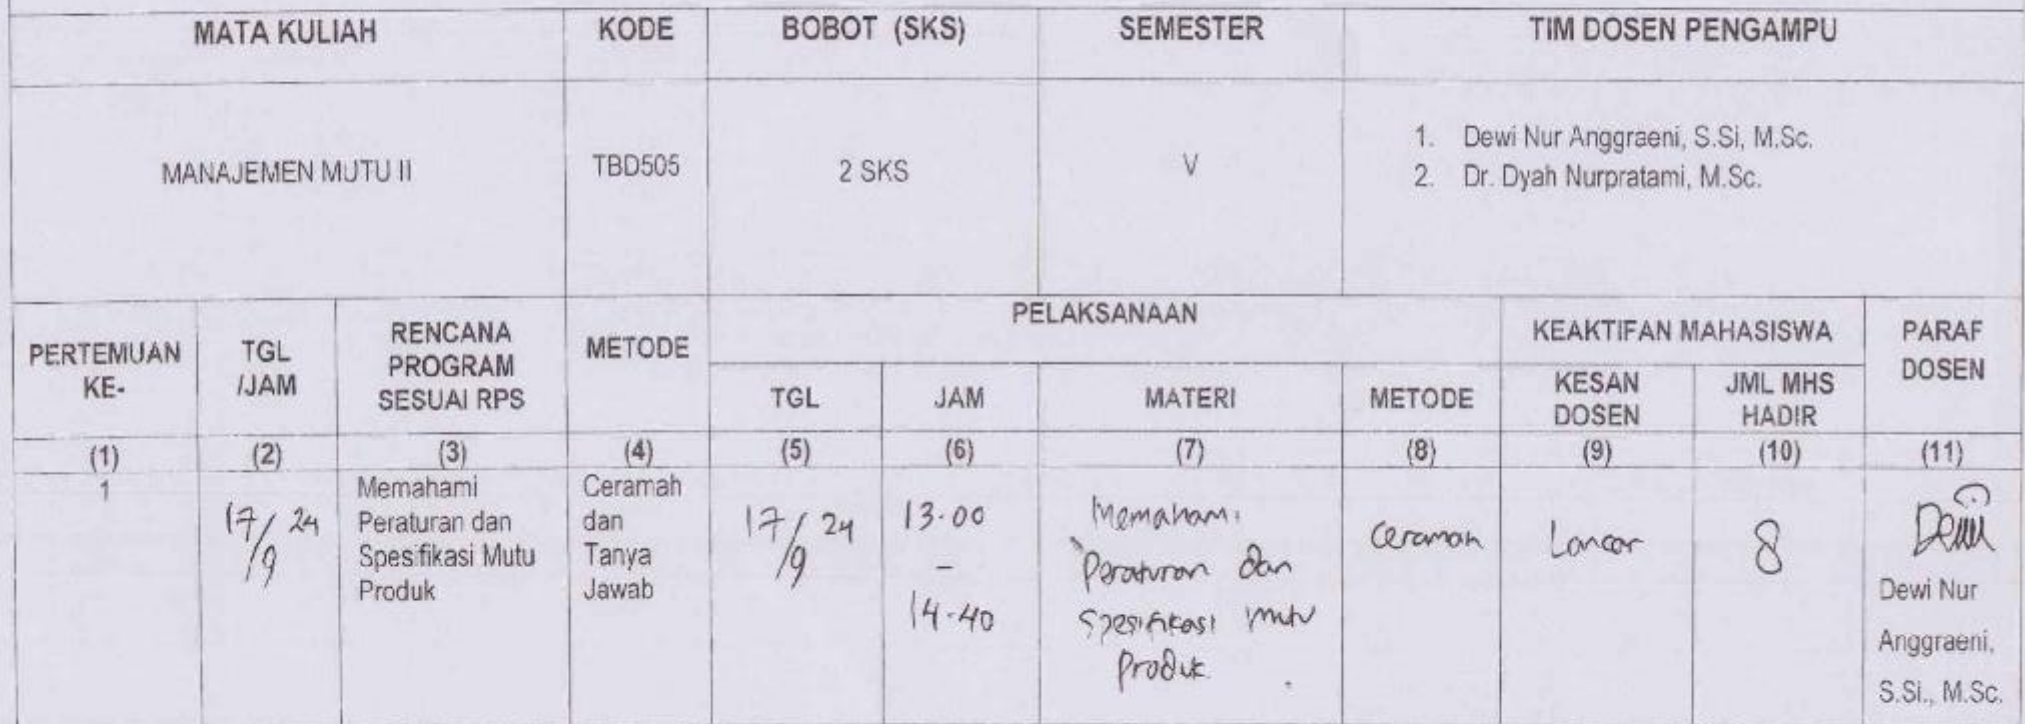 MATA KULIAH KODE BOBOT (SKS) SEMESTER TIM DOSEN PENGAMPU
MANAJEMEN MUTU II TBD505 2 SKS V
1. Dewi Nur Anggraeni, S.Si, M.Sc.
2. Dr. Dyah Nurpratami, M.Sc.
PERTEMUAN
KE-
TGL
/JAM
RENCANA
PROGRAM
SESUAI RPS
METODE
PELAKSANAAN
TGL JAM MATERI METODE
KEAKTIFAN MAHASISWA
KESAN
DOSEN
JML MHS
HADIR
PARAF
DOSEN
(1) (2) (3) (4) (5) (6) (7) (8) (9) (10) (11)
1
17/9 24
Memahami
Peraturan dan
Spesifikasi Mutu
Produk
Ceramah
dan
Tanya
Jawab
17/9 24
13.00
-
14.40
Memahami
Peraturan dan
Spesifikasi mutu
Produk.
Ceramah
Lancar
8
Dewi
Dewi Nur
Anggraeni,
S.Si., M.Sc.